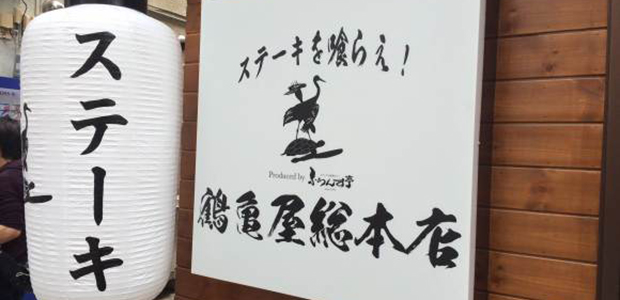 ステーキ
ステーキを喰らえ!
Produced by ふらんす亭
鶴亀屋総本店